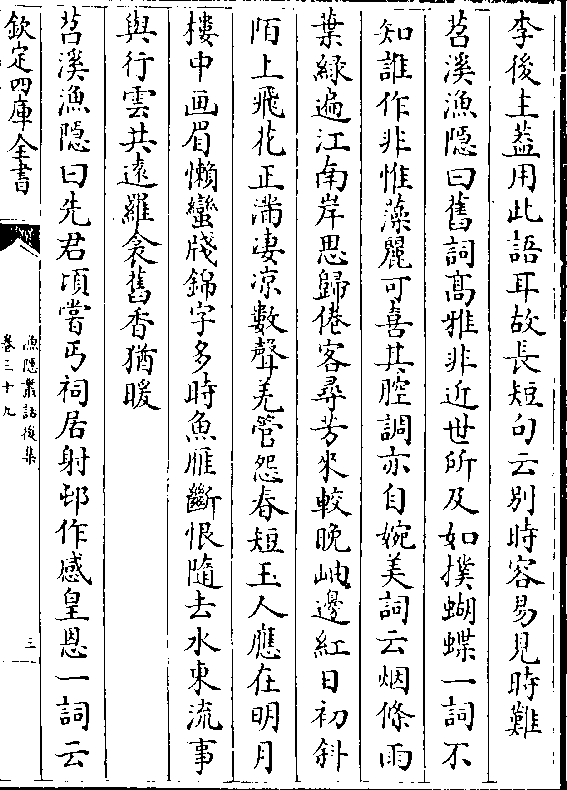 李後主葢用此語耳故長短句云别時容易見時難
苕溪漁隠曰舊詞髙雅非近世所及如撲蝴蝶一詞不
知誰作非惟藻麗可喜其腔調亦自婉美詞云烟條雨
葉緑遍江南岸思歸倦客尋芳來較晚岫邊紅日初斜
陌上飛花正滿凄凉數聲羌管怨春短玉人應在明月
樓中画眉懶蠻牋錦字多時魚雁斷恨隨去水東流事
與行雲共逺羅衾舊香猶暖
苕溪漁隠曰先君頃嘗丐祠居射邨作感皇恩一詞云
欽定四庫全書
漁隠叢話後集
卷三十九
三